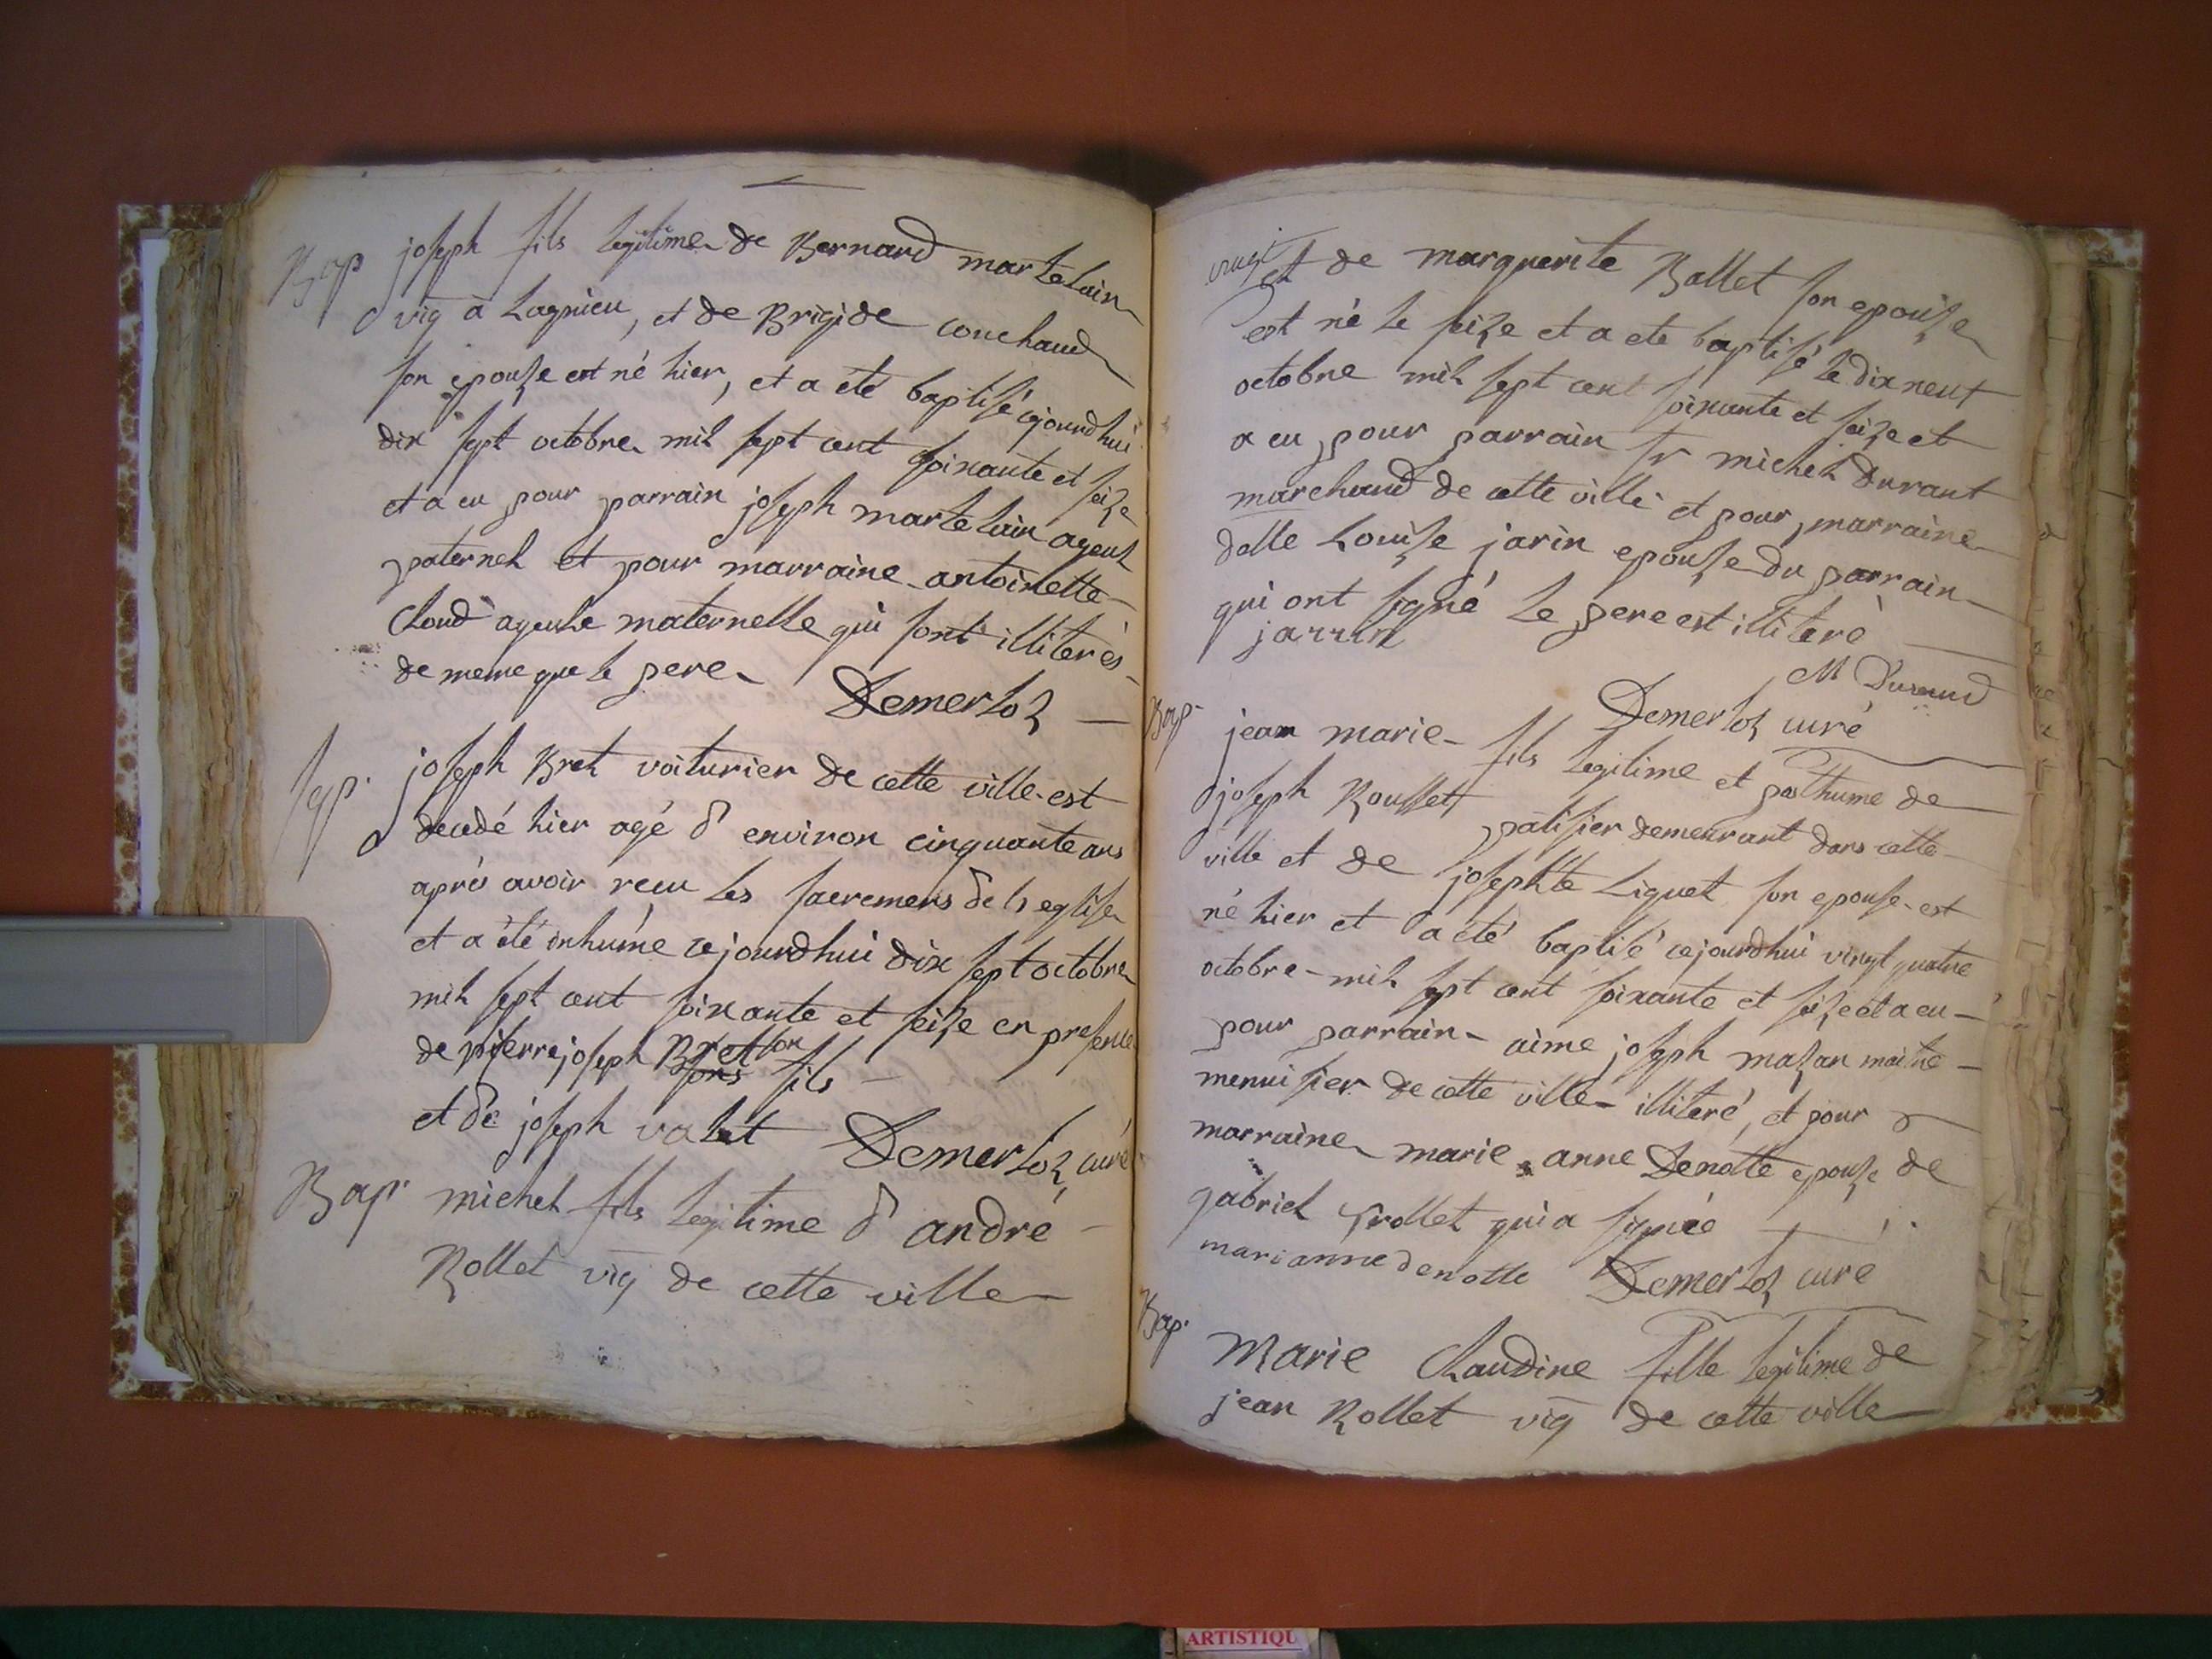 Bap joseph fils legitime de Bernard martelain
vig à Lagnieu, et de Brigide conchaud
son epouse est né hier, et a eté baptisé cejourdhui
dix sept octobre mil sept cent soixante et seize
et a eu pour parrain joseph martelain ayeul
paternel et pour marraine antoinette
Cloud ayeule maternelle qui sont illiterés
de meme que le pere Demerloz
Sep. joseph Bret voiturier de cette ville est
decedé hier agé d'environ cinquante ans
aprés avoir reçu les sacremens de l'eglise
et a été inhumé cejourdhui dix sept octobre
mil sept cent soixante et seize en presence
de pierre joseph Bret son fils
et de joseph valet Demerloz curé
Bap. michel fils legitime d'andré
Rollet vig de cette ville
et de marguerite Ballet son epouse
est né le seize et a ete baptisé le dix neuf
octobre mil sept cent soixante et seize et
a eu pour parrain sr michel Durant
marchand de cette ville et pour marraine
delle Louise jarin epouse du parrain
qui ont signé le pere est illiteré
jarrin
M Durand
Demerloz curé
Bap. jean marie fils legitime et posthume de
joseph Rousset patissier demeurant dans cette
ville et de josephte Liquet son epouse est
né hier et a eté baptisé cejourdhui vingt quatre
octobre mil sept cent soixante et seize et a eu
pour parrain aimé joseph mazan maitre
menuisier de cette ville illiteré, et pour
marraine marie anne Denotte epouse de
gabriel Grollet qui a signée
marianne denotte Demerloz curé
Bap. Marie Claudine fille legitime de
jean Rollet vig de cette ville
ARTISTIQU